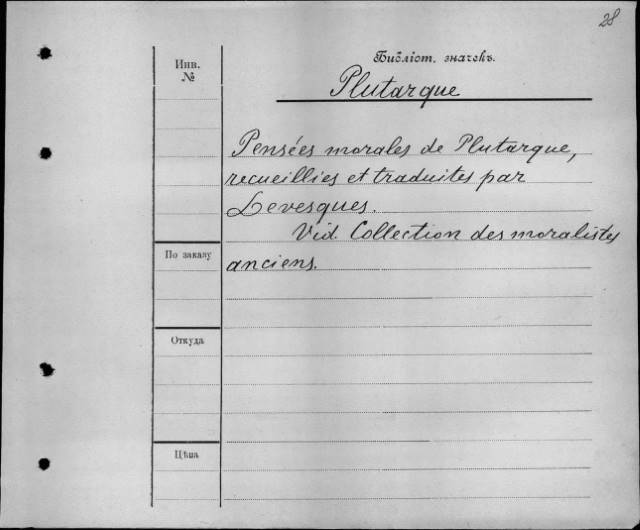 28
Инв.
№
Библіот. значекъ.
Plutarque
Pensées morales de Plutarque,
recueillies et traduites par
Levesques.
Vid. Collection des moralistes
anciens.
По заказу
Откуда
Цѣна